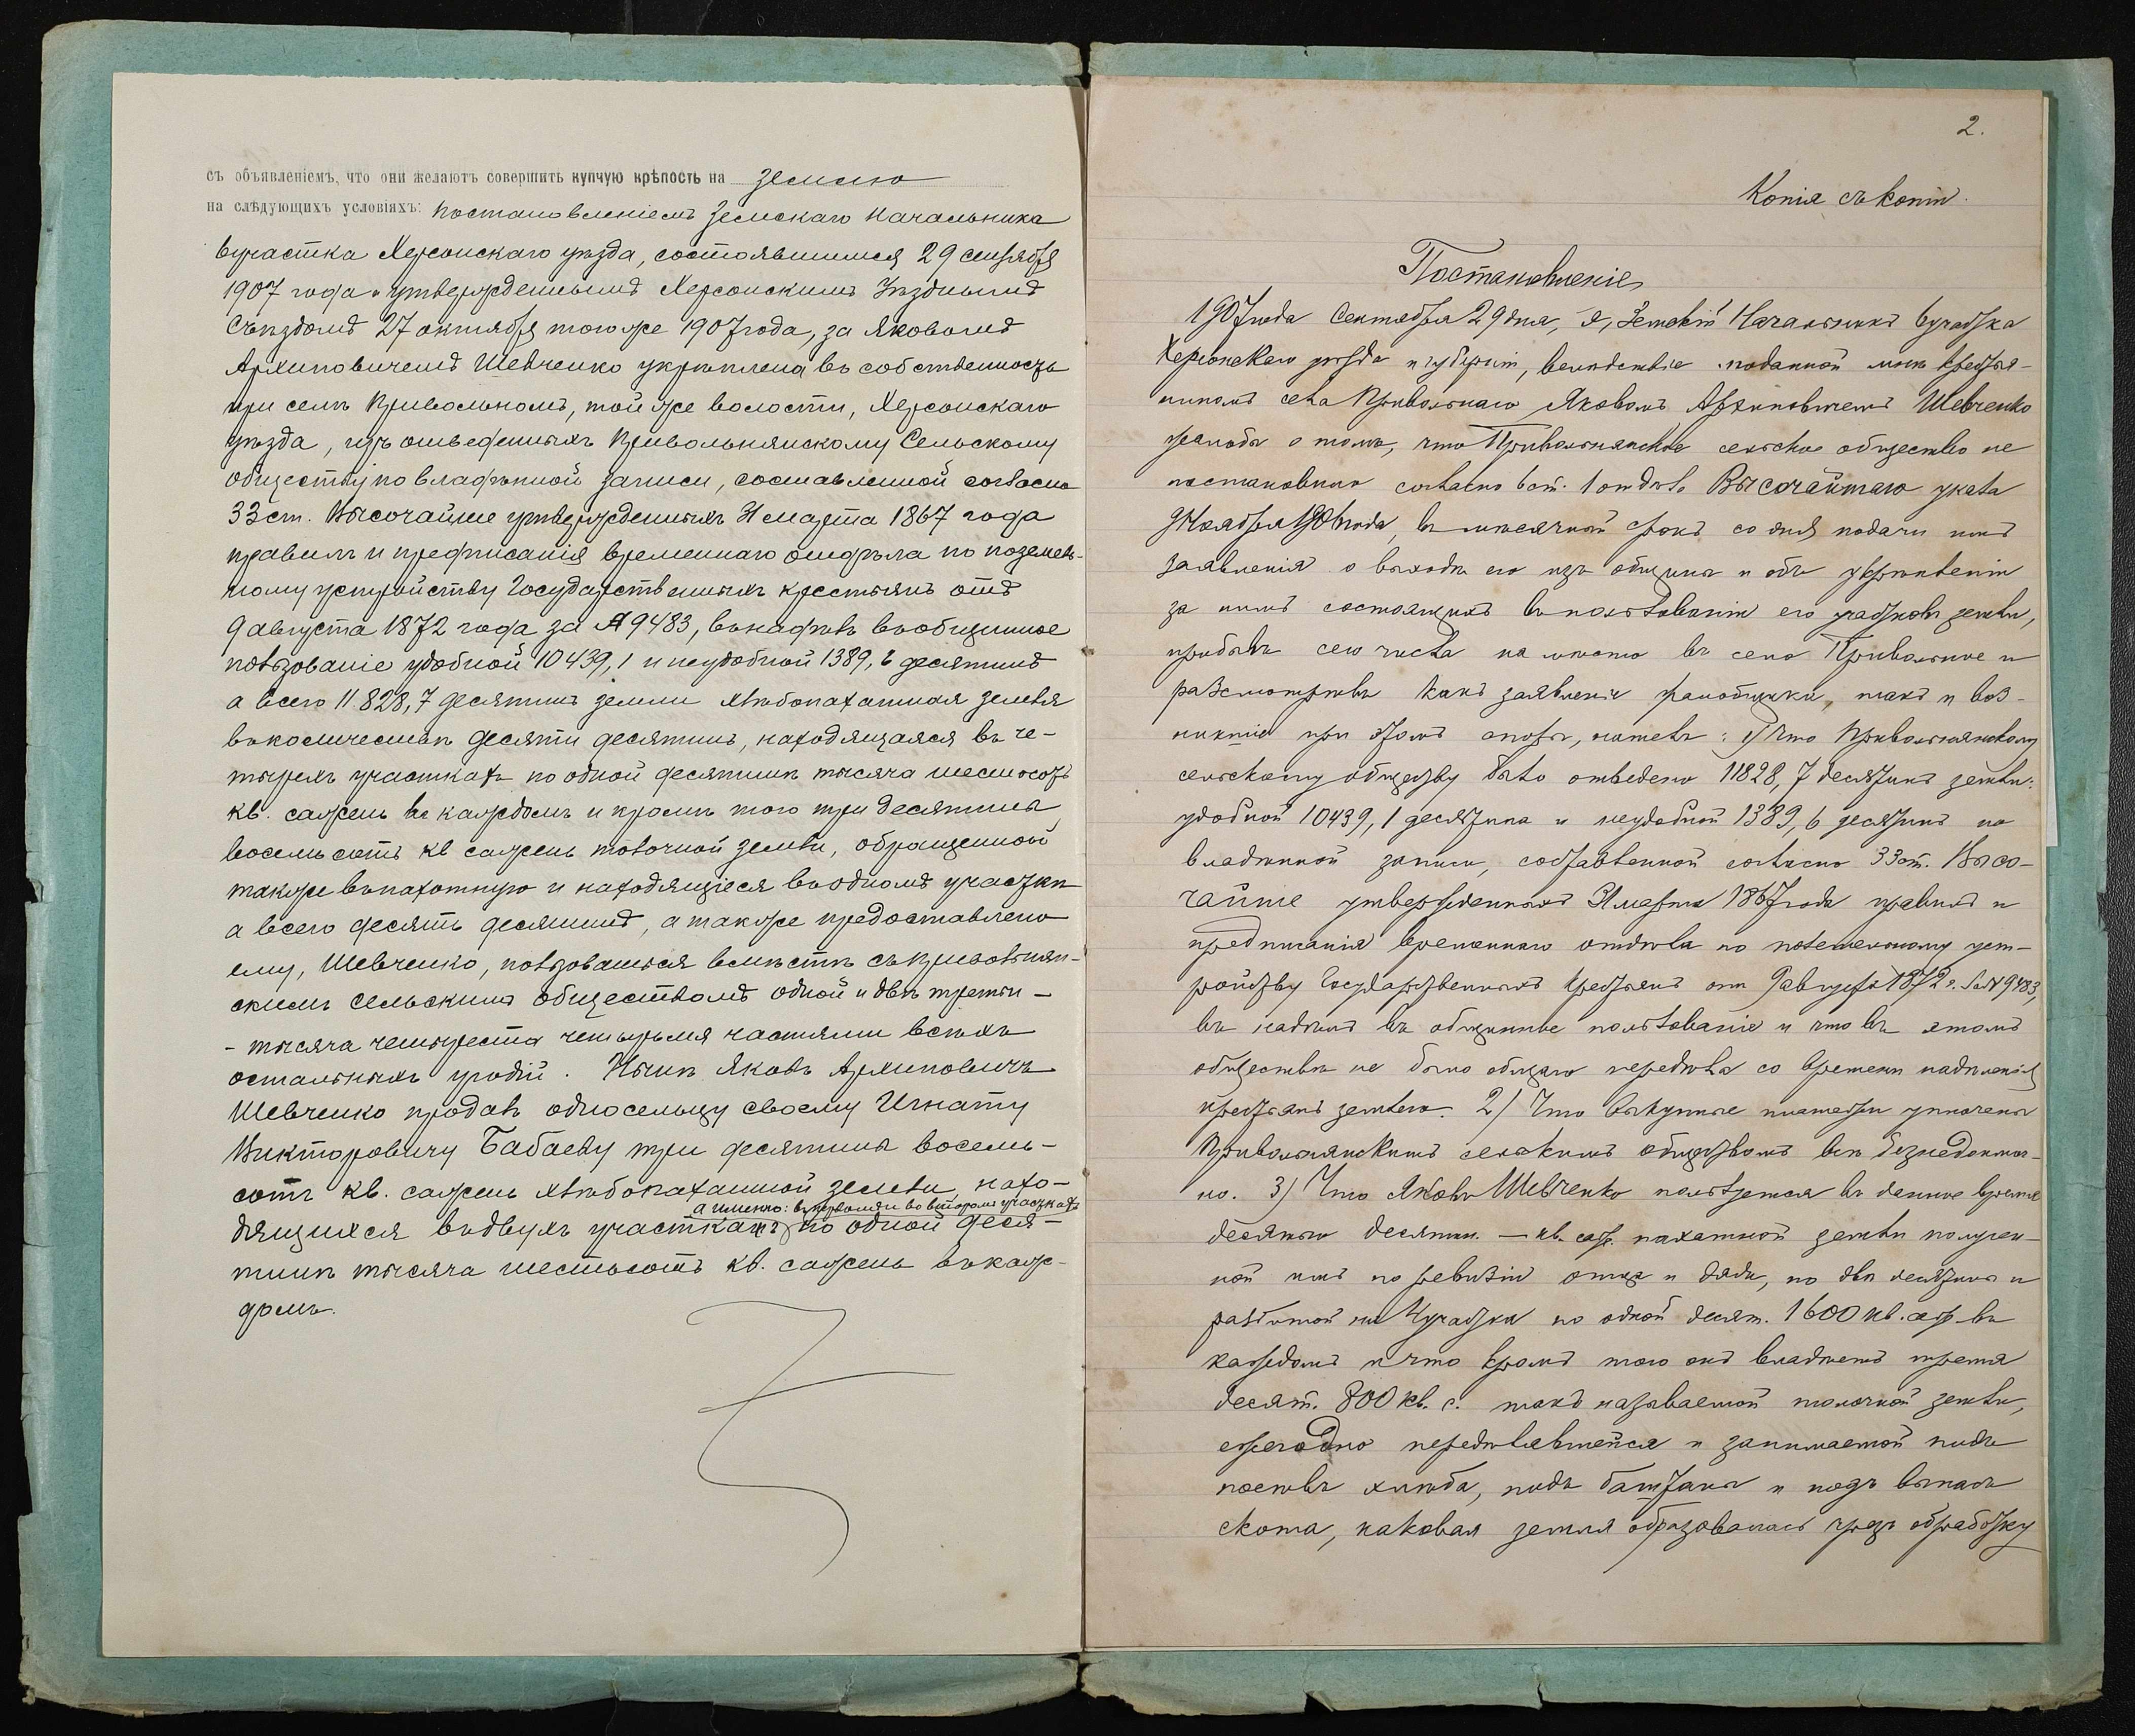 съ объявленіемъ, что они желаютъ совершить купчую крѣпость на землю
на слѣдующихъ условіяхъ: Постановленіемъ Земскаго Начальника
6 участка Херсонскаго уѣзда, состоявшимся 29 Сентября
1907 года и утвержденнымъ Херсонскимъ Уѣзднымъ
Съѣздомъ 27 октября того же 1907 года, за Яковомъ
Архиповичемъ Шевченко укрѣплена въ собственность
при селѣ Привольномъ, той же волости, Херсонскаго
уѣзда, изъ отведенныхъ Привольнянскому Сельскому
обществу по владѣнной записи, составленной согласно
33 ст. Высочайше утвержденныхъ 31 марта 1867 года
правилъ и предписанія временнаго отдѣла по поземель-
ному устройству Государственныхъ крестьянъ отъ
9 августа 1872 года за № 9483, въ надѣлъ въ общинное
пользованіе удобной 10439,1 и неудобной 1389,6 десятинъ
а всего 11.828,7 десятинъ земли хлѣбопахатная земля
въ количествѣ десяти десятинъ, находящаяся въ че-
тырехъ участкахъ по одной десятинѣ тысяча шестьсотъ
кв. сажень въ каждомъ и кромѣ того три десятины
восемьсотъ кв сажень толочной земли, обращенной
также въ пахотную и находящіеся въ одномъ участкѣ
а всего десять десятинъ, а также предоставлено
ему, Шевченко, пользоваться вмѣстѣ съ Привольнян-
скимъ Сельскимъ обществомъ одной и двѣ трети -
- тысяча четыреста четырьмя частями всѣхъ
остальныхъ угодій. Нынѣ Яковъ Архиповичъ
Шевченко продалъ односельцу своему Игнату
Викторовичу Бабаеву три десятины восемь-
сотъ кв. сажень хлѣбопахатной земли, нахо-
а именно: въ первомъ и во второмъ участкахъ
дящихся въ двухъ участкахъ по одной деся-
тинѣ тысяча шестьсотъ кв. сажень въ каж-
домъ.
2.
Копія съ копіи.
Постановленіе
1907 года Сентября 29 дня, я, Земскій Начальникъ 6 участка
Херсонскаго уѣзда и губерніи, вслѣдствіе поданной мнѣ крестья-
ниномъ села Привольнаго Яковомъ Архиповичемъ Шевченко
жалобы о томъ, что Привольнянское сельское общество не
постановило согласно 6 ст. 1 отдѣла Высочайшаго указа
9 Ноября 1906 года, въ мѣсячный срокъ со дня подачи имъ
заявленія о выходѣ его изъ общины и объ укрѣпленіи
за нимъ состоящихъ въ пользованіи его участковъ земли,
прибылъ сего числа на мѣсто въ село Привольное и
разсмотрѣвъ какъ заявленіе жалобщика, такъ и воз-
никшіе при этомъ споры, нашелъ: 1) Что Привольнянскому
сельскому обществу было отведено 11828,7 десятинъ земли:
удобной 10439,1 десятина и неудобной 1389,6 десятинъ по
владѣнной записи, составленной согласно 33 ст. Высо-
чайше утвержденныхъ 31 марта 1867 года правилъ и
предписанія временнаго отдѣла по поземельному уст-
ройству Государственныхъ крестьянъ отъ 9 августа 1872 г. за № 9483,
въ надѣлъ въ общинное пользованіе и что въ этомъ
обществѣ не было общаго передѣла со времени надѣленія
крестьянъ землею. 2) Что выкупные платежи уплачены
Привольнянскимъ сельскимъ обществомъ всѣ безнедоимоч-
но. 3) Что Яковъ Шевченко пользуется въ данное время
десятью десятин. — кв. саж. пахатной земли получен-
ной имъ по ревизіи отца и дяди, по двѣ десятины и
разбитой на 4 участка по одной десят. 1600 кв. саж. въ
каждомъ и что кромѣ того онъ владѣетъ тремя
десят. 800 кв. с. такъ называемой толочной земли,
ежегодно передѣлявшейся и занимаемой подъ
посѣвъ хлѣба, подъ баштаны и подъ выпасъ
скота, каковая земля образовалась чрезъ обработку